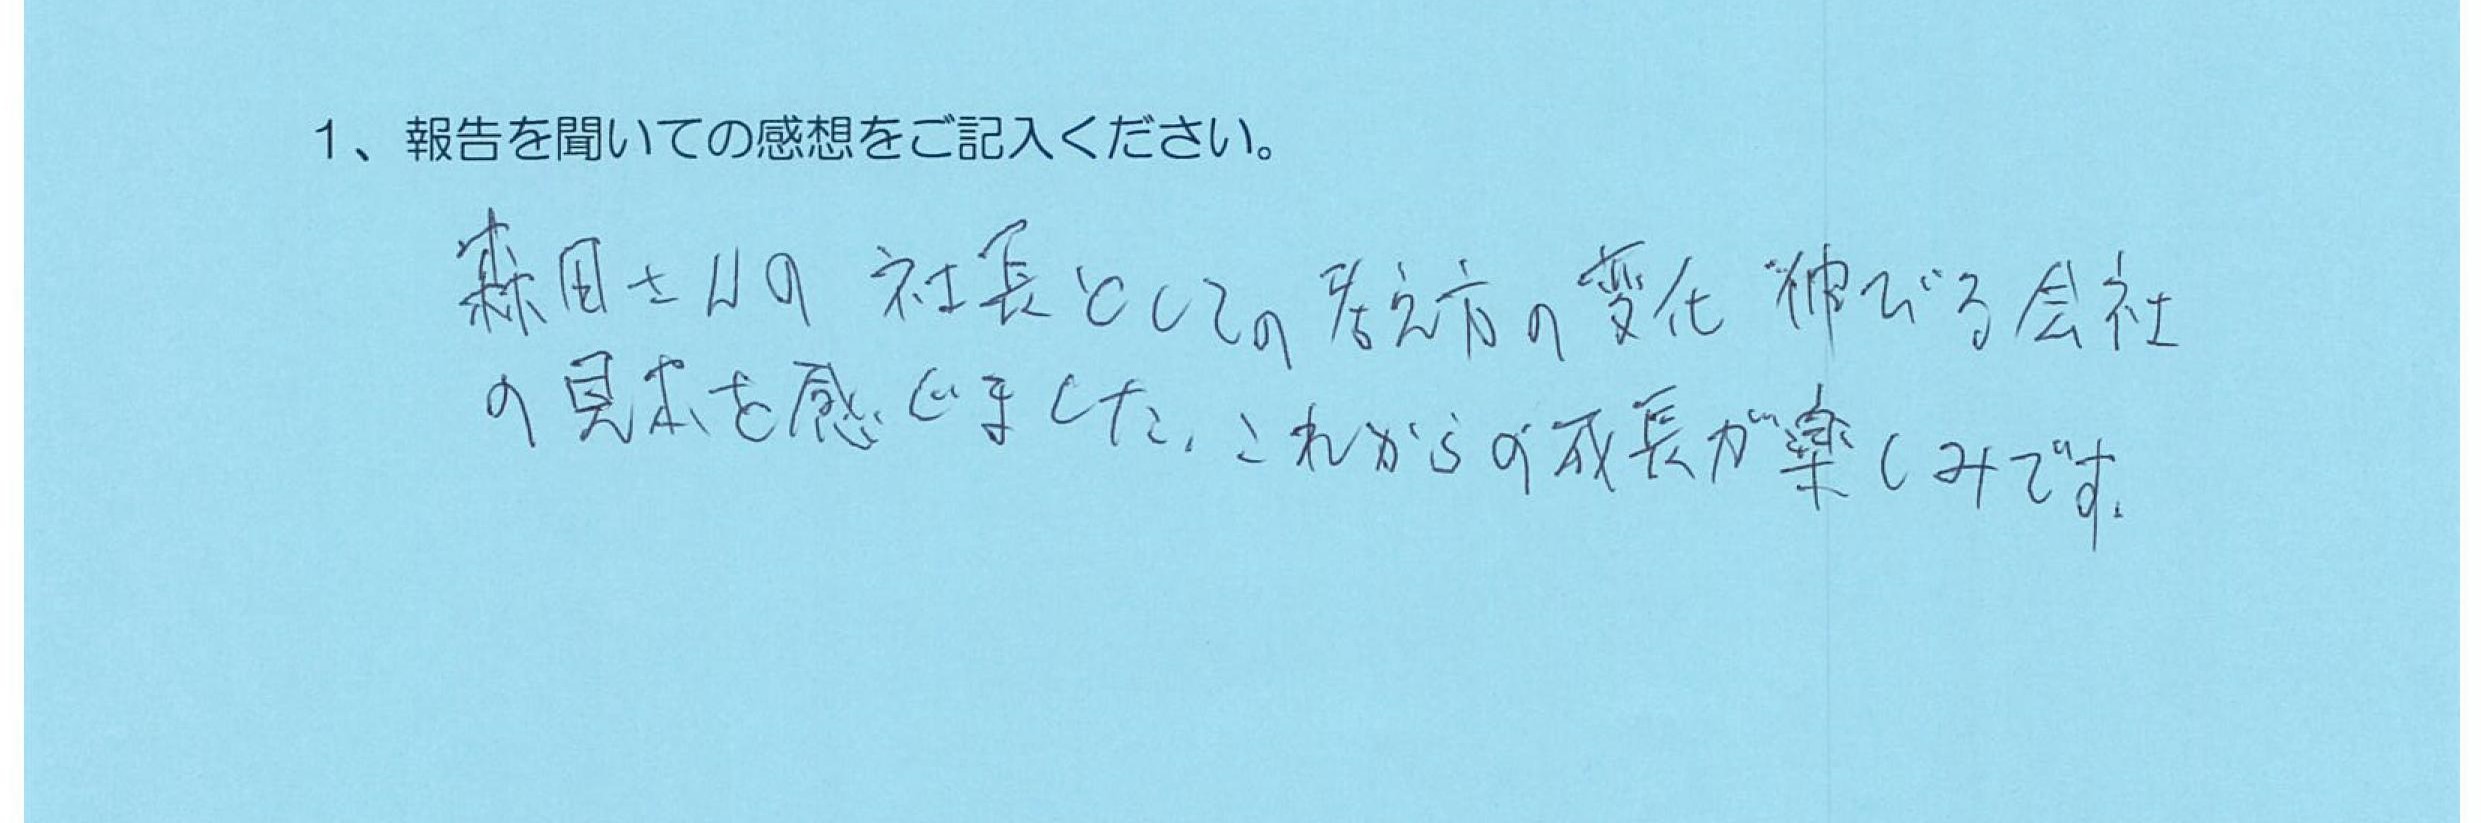 1、報告を聞いての感想をご記入ください。
森田さんの 社長としての考え方の変化 伸びる会社
の見本を感じました。これからの成長が楽しみです。